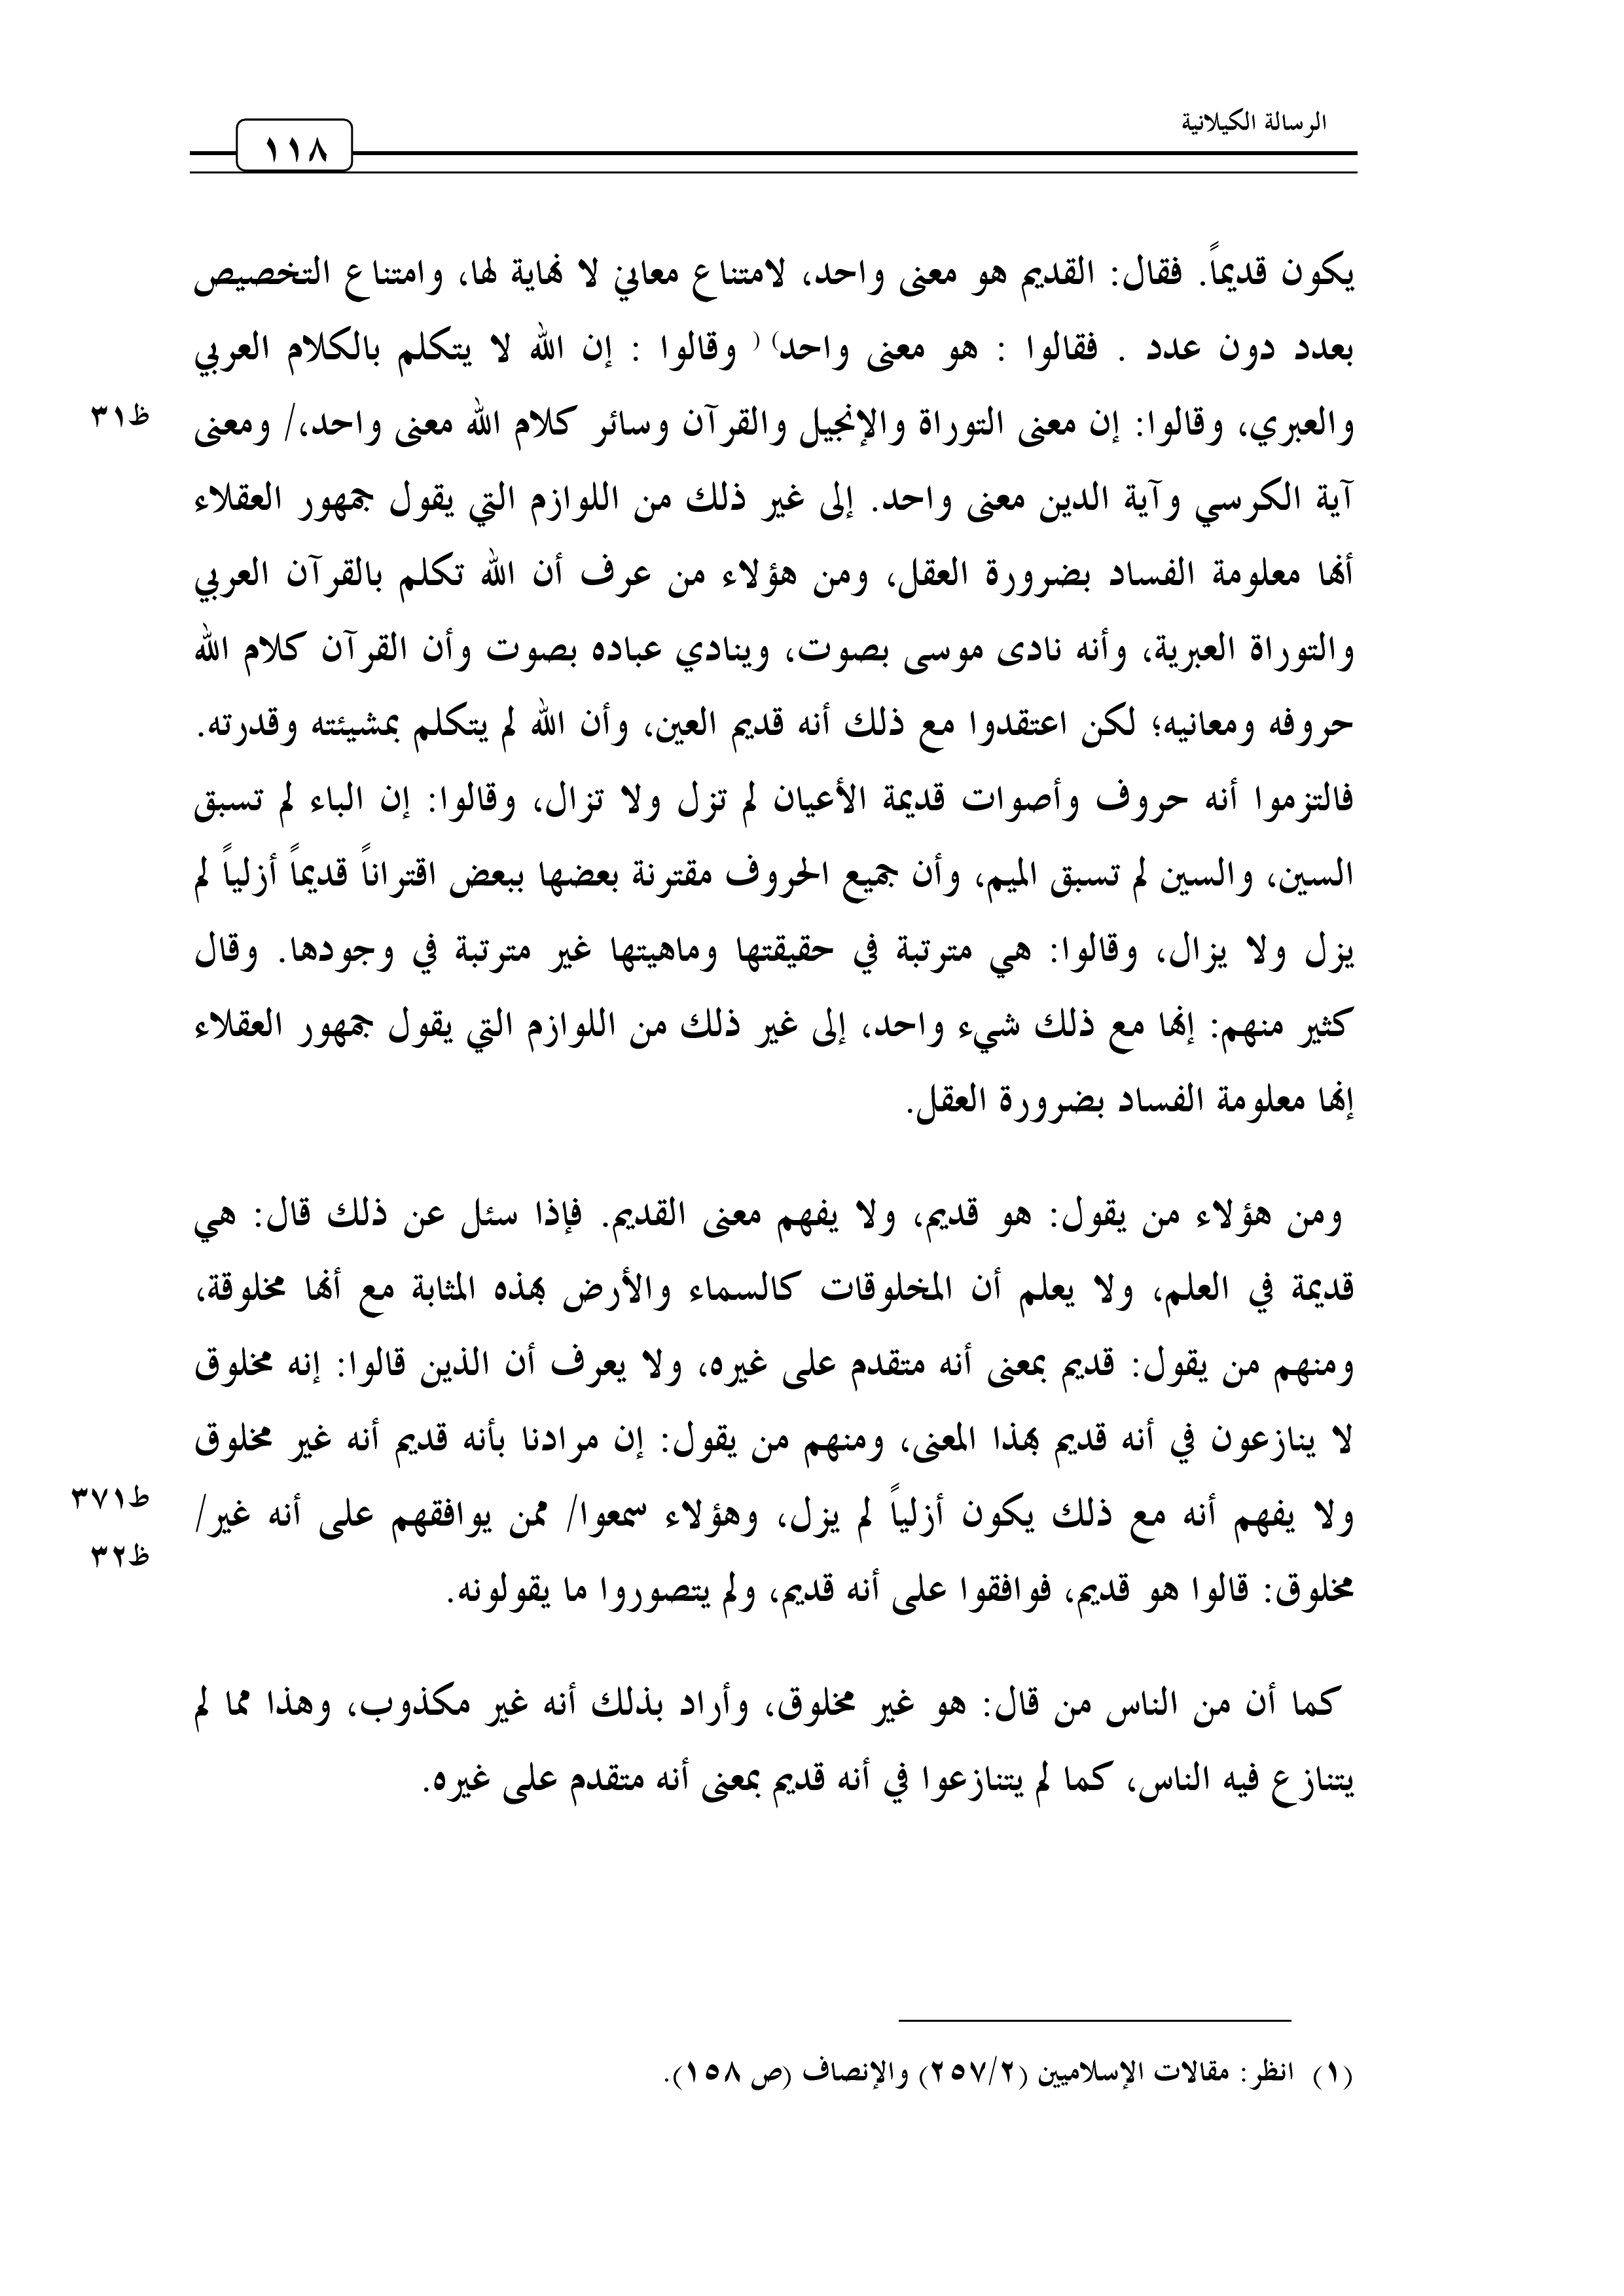 الرسالة الكيلانية
١١٨
يكون قديماً. فقال: القديم هو معنى واحد، لامتناع معاني لا نهاية لها، وامتناع التخصيص
بعدد دون عدد . فقالوا : هو معنى واحد) ( وقالوا : إن الله لا يتكلم بالكلام العربي
والعبري، وقالوا: إن معنى التوراة والإنجيل والقرآن وسائر كلام الله معنى واحد،/ ومعنى
ظ٣١
آية الكرسي وآية الدين معنى واحد. إلى غير ذلك من اللوازم التي يقول جمهور العقلاء
أنها معلومة الفساد بضرورة العقل، ومن هؤلاء من عرف أن الله تكلم بالقرآن العربي
والتوراة العبرية، وأنه نادى موسى بصوت، وينادي عباده بصوت وأن القرآن كلام الله
حروفه ومعانيه؛ لكن اعتقدوا مع ذلك أنه قديم العين، وأن الله لم يتكلم بمشيئته وقدرته.
فالتزموا أنه حروف وأصوات قديمة الأعيان لم تزل ولا تزال، وقالوا: إن الباء لم تسبق
السين، والسين لم تسبق الميم، وأن جميع الحروف مقترنة بعضها ببعض اقتراناً قديماً أزلياً لم
يزل ولا يزال، وقالوا: هي مترتبة في حقيقتها وماهيتها غير مترتبة في وجودها. وقال
كثير منهم: إنها مع ذلك شيء واحد، إلى غير ذلك من اللوازم التي يقول جمهور العقلاء
إنها معلومة الفساد بضرورة العقل.
ومن هؤلاء من يقول: هو قديم، ولا يفهم معنى القديم. فإذا سئل عن ذلك قال: هي
قديمة في العلم، ولا يعلم أن المخلوقات كالسماء والأرض بهذه المثابة مع أنها مخلوقة،
ومنهم من يقول: قديم بمعنى أنه متقدم على غيره، ولا يعرف أن الذين قالوا: إنه مخلوق
لا ينازعون في أنه قديم بهذا المعنى، ومنهم من يقول: إن مرادنا بأنه قديم أنه غير مخلوق
ولا يفهم أنه مع ذلك يكون أزلياً لم يزل، وهؤلاء سمعوا/ ممن يوافقهم على أنه غير/
ط٣٧١
ظ٣٢
مخلوق: قالوا هو قديم، فوافقوا على أنه قديم، ولم يتصوروا ما يقولونه.
كما أن من الناس من قال: هو غير مخلوق، وأراد بذلك أنه غير مكذوب، وهذا مما لم
يتنازع فيه الناس، كما لم يتنازعوا في أنه قديم بمعنى أنه متقدم على غيره.
(١) انظر: مقالات الإسلاميين (٢/‏٢٥٧) والإنصاف (ص ١٥٨).